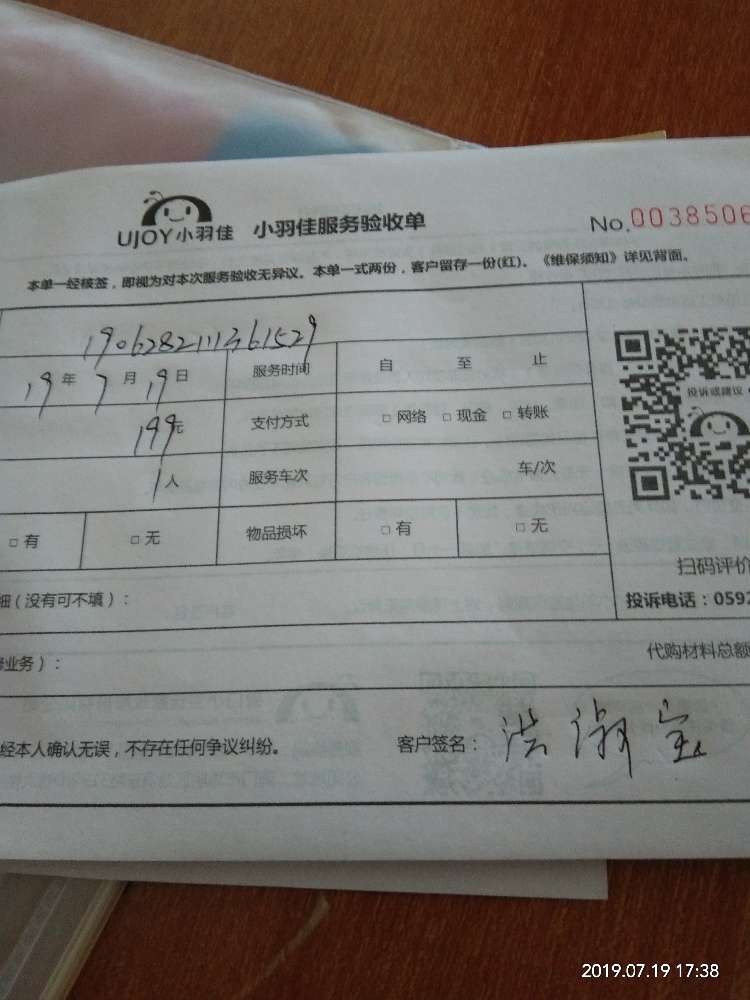 UJOY小羽佳 小羽佳服务验收单 No.0038506
本单一经核签，即视为对本次服务验收无异议。本单一式两份，客户留存一份(红)。《维保须知》详见背面。
1906282111361529
19年7月19日 服务时间 自 至 止
199元 支付方式 □ 网络 □ 现金 □ 转账
1人 服务车次 车/次
□ 有 □ 无 物品损坏 □ 有 □ 无
投诉或建议
扫码评价
细（没有可不填）：
投诉电话：0592
修业务）：
代购材料总额
经本人确认无误，不存在任何争议纠纷。 客户签名：洪淑宝
2019.07.19 17:38